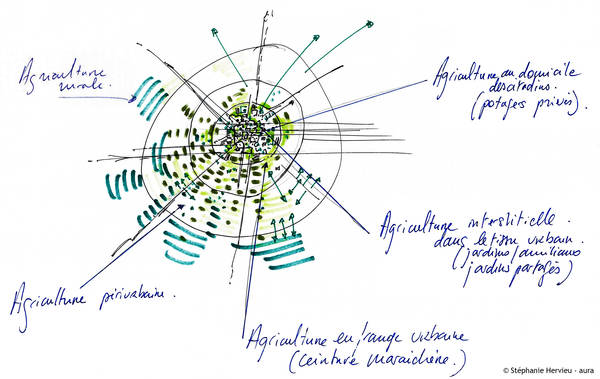 Agriculture
rurale.
Agriculture au domicile
des citadins.
(potagers privés).
Agriculture interstitielle
dans le tissu urbain.
(jardins familiaux
jardins partagés)
Agriculture périurbaine.
Agriculture en frange urbaine
(ceinture maraîchère.)
© Stéphanie Hervieu - aura